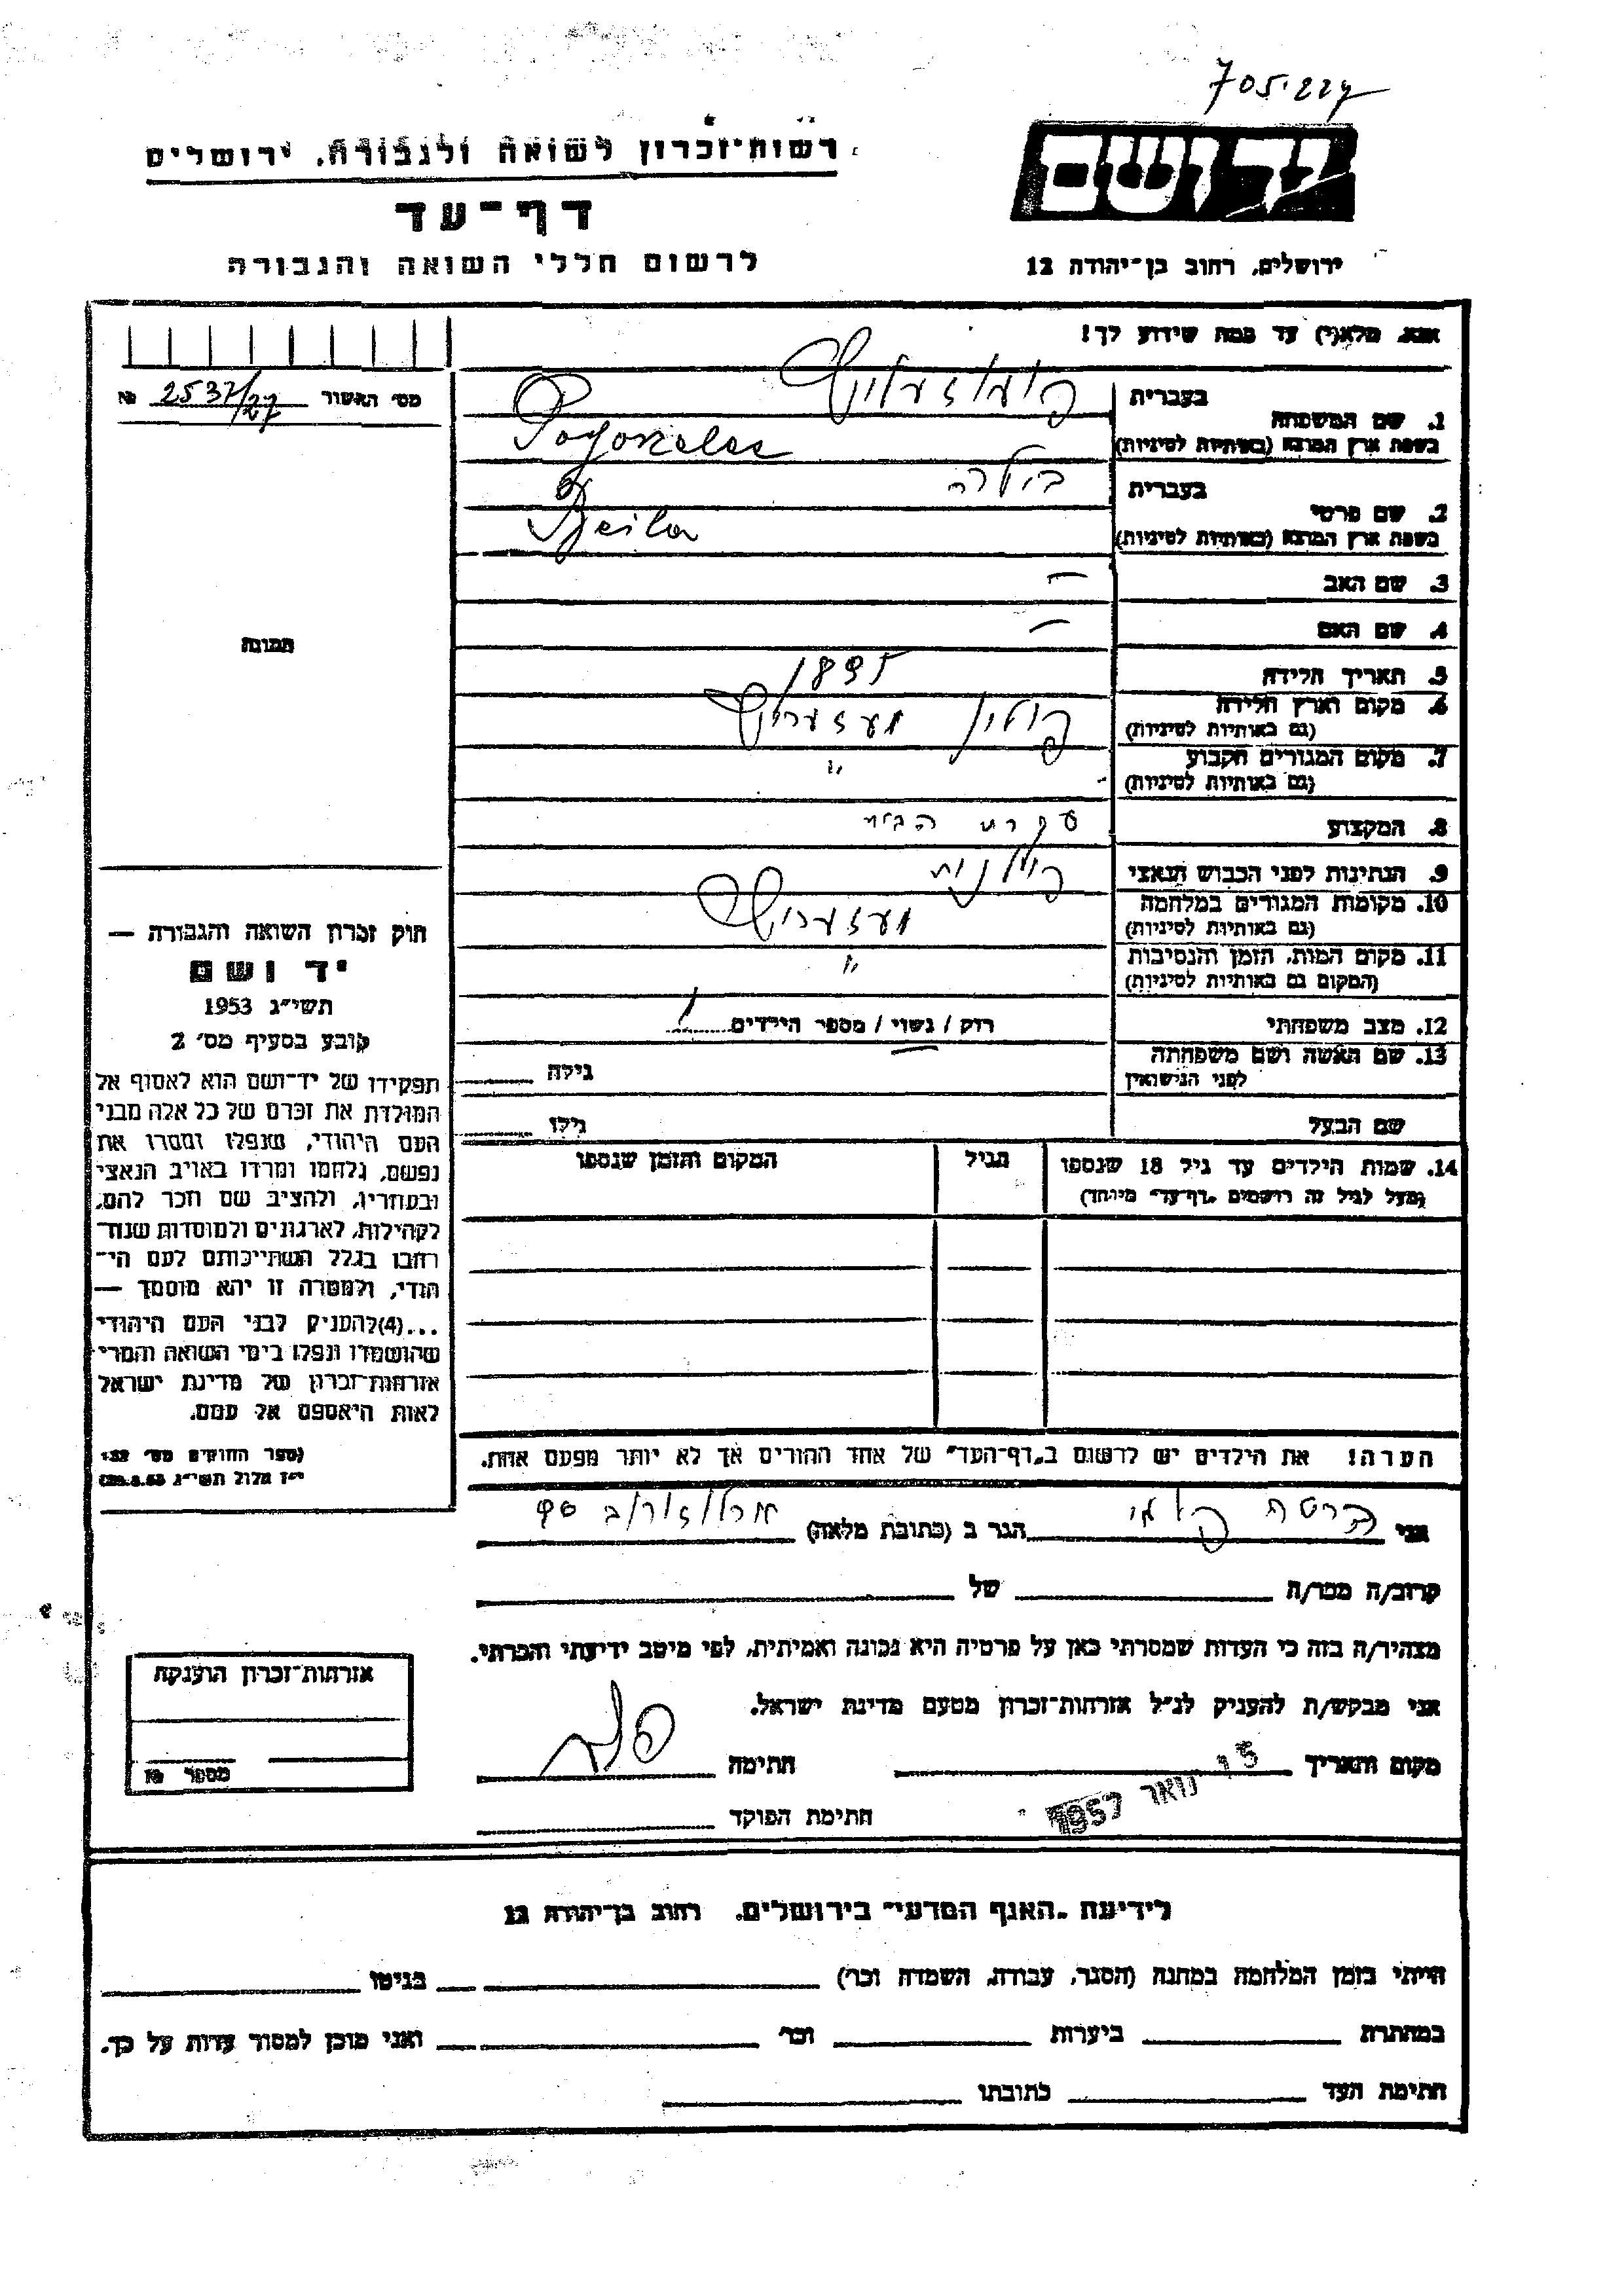 705.227
רשות־זכרון לשואה ולגבורה, ירושלים
יד ושם
דף־עד
לרשום חללי השואה והגבורה
ירושלים, רחוב בן־יהודה 12
אנא, מלא(י) עד כמה שידוע לך!
מס׳ האשור 2537/27 №
בעברית
1. שם המשפחה
בשפת ארץ המוצא (באותיות לטיניות)
בעברית ביילה
2. שם פרטי
בשפת ארץ המוצא (באותיות לטיניות) Beila
3. שם האב —
4. שם האם —
תמונה
5. תאריך הלידה 1895
6. מקום וארץ הלידה פולין
(גם באותיות לטיניות)
7. מקום המגורים הקבוע "
(גם באותיות לטיניות)
8. המקצוע עקרת הבית
9. הנתינות לפני הכבוש הנאצי פולנית
10. מקומות המגורים במלחמה
(גם באותיות לטיניות)
11. מקום המות, הזמן והנסיבות "
(המקום גם באותיות לטיניות)
12. מצב משפחתי רווק / נשוי / מספר הילדים
13. שם האשה ושם משפחתה גילה
לפני הנישואין
שם הבעל גילו
14. שמות הילדים עד גיל 18 שנספו הגיל המקום והזמן שנספו
(מעל לגיל זה רושמים „דף־עד״ מיוחד)
חוק זכרון השואה והגבורה —
יד ושם
תשי״ג 1953
קובע בסעיף מס׳ 2
תפקידו של יד־ושם הוא לאסוף אל
המולדת את זכרם של כל אלה מבני
העם היהודי, שנפלו ומסרו את
נפשם, נלחמו ומרדו באויב הנאצי
ובעוזריו, ולהציב שם וזכר להם,
לקהילות, לארגונים ולמוסדות שנח־
רבו בגלל השתייכותם לעם הי־
הודי, ולמטרה זו יהא מוסמך —
...(4) להעניק לבני העם היהודי
שהושמדו ונפלו בימי השואה והמרי
אזרחות־זכרון של מדינת ישראל
לאות היאספם אל עמם.
(ספר החוקים מס׳ 132
י״ז אלול תשי״ג 28.8.53)
הערה! את הילדים יש לרשום ב„דף־העד״ של אחד ההורים אך לא יותר מפעם אחת.
אני הגר ב (כתובת מלאה)
קרוב/ה מכר/ה של
מצהיר/ה בזה כי העדות שמסרתי כאן על פרטיה היא נכונה ואמיתית, לפי מיטב ידיעתי והכרתי.
אני מבקש/ת להעניק לנ״ל אזרחות־זכרון מטעם מדינת ישראל.
מקום ותאריך 15 ינואר 1957 חתימה
חתימת הפוקד
אזרחות־זכרון הוענקה
מספר №
לידיעת „האגף המדעי״ בירושלים, רחוב בן־יהודה 12
הייתי בזמן המלחמה במחנה (הסגר, עבודה, השמדה וכו׳) בגיטו
במחתרת ביערות וכו׳ ואני מוכן למסור עדות על כך.
חתימת העד כתובתו